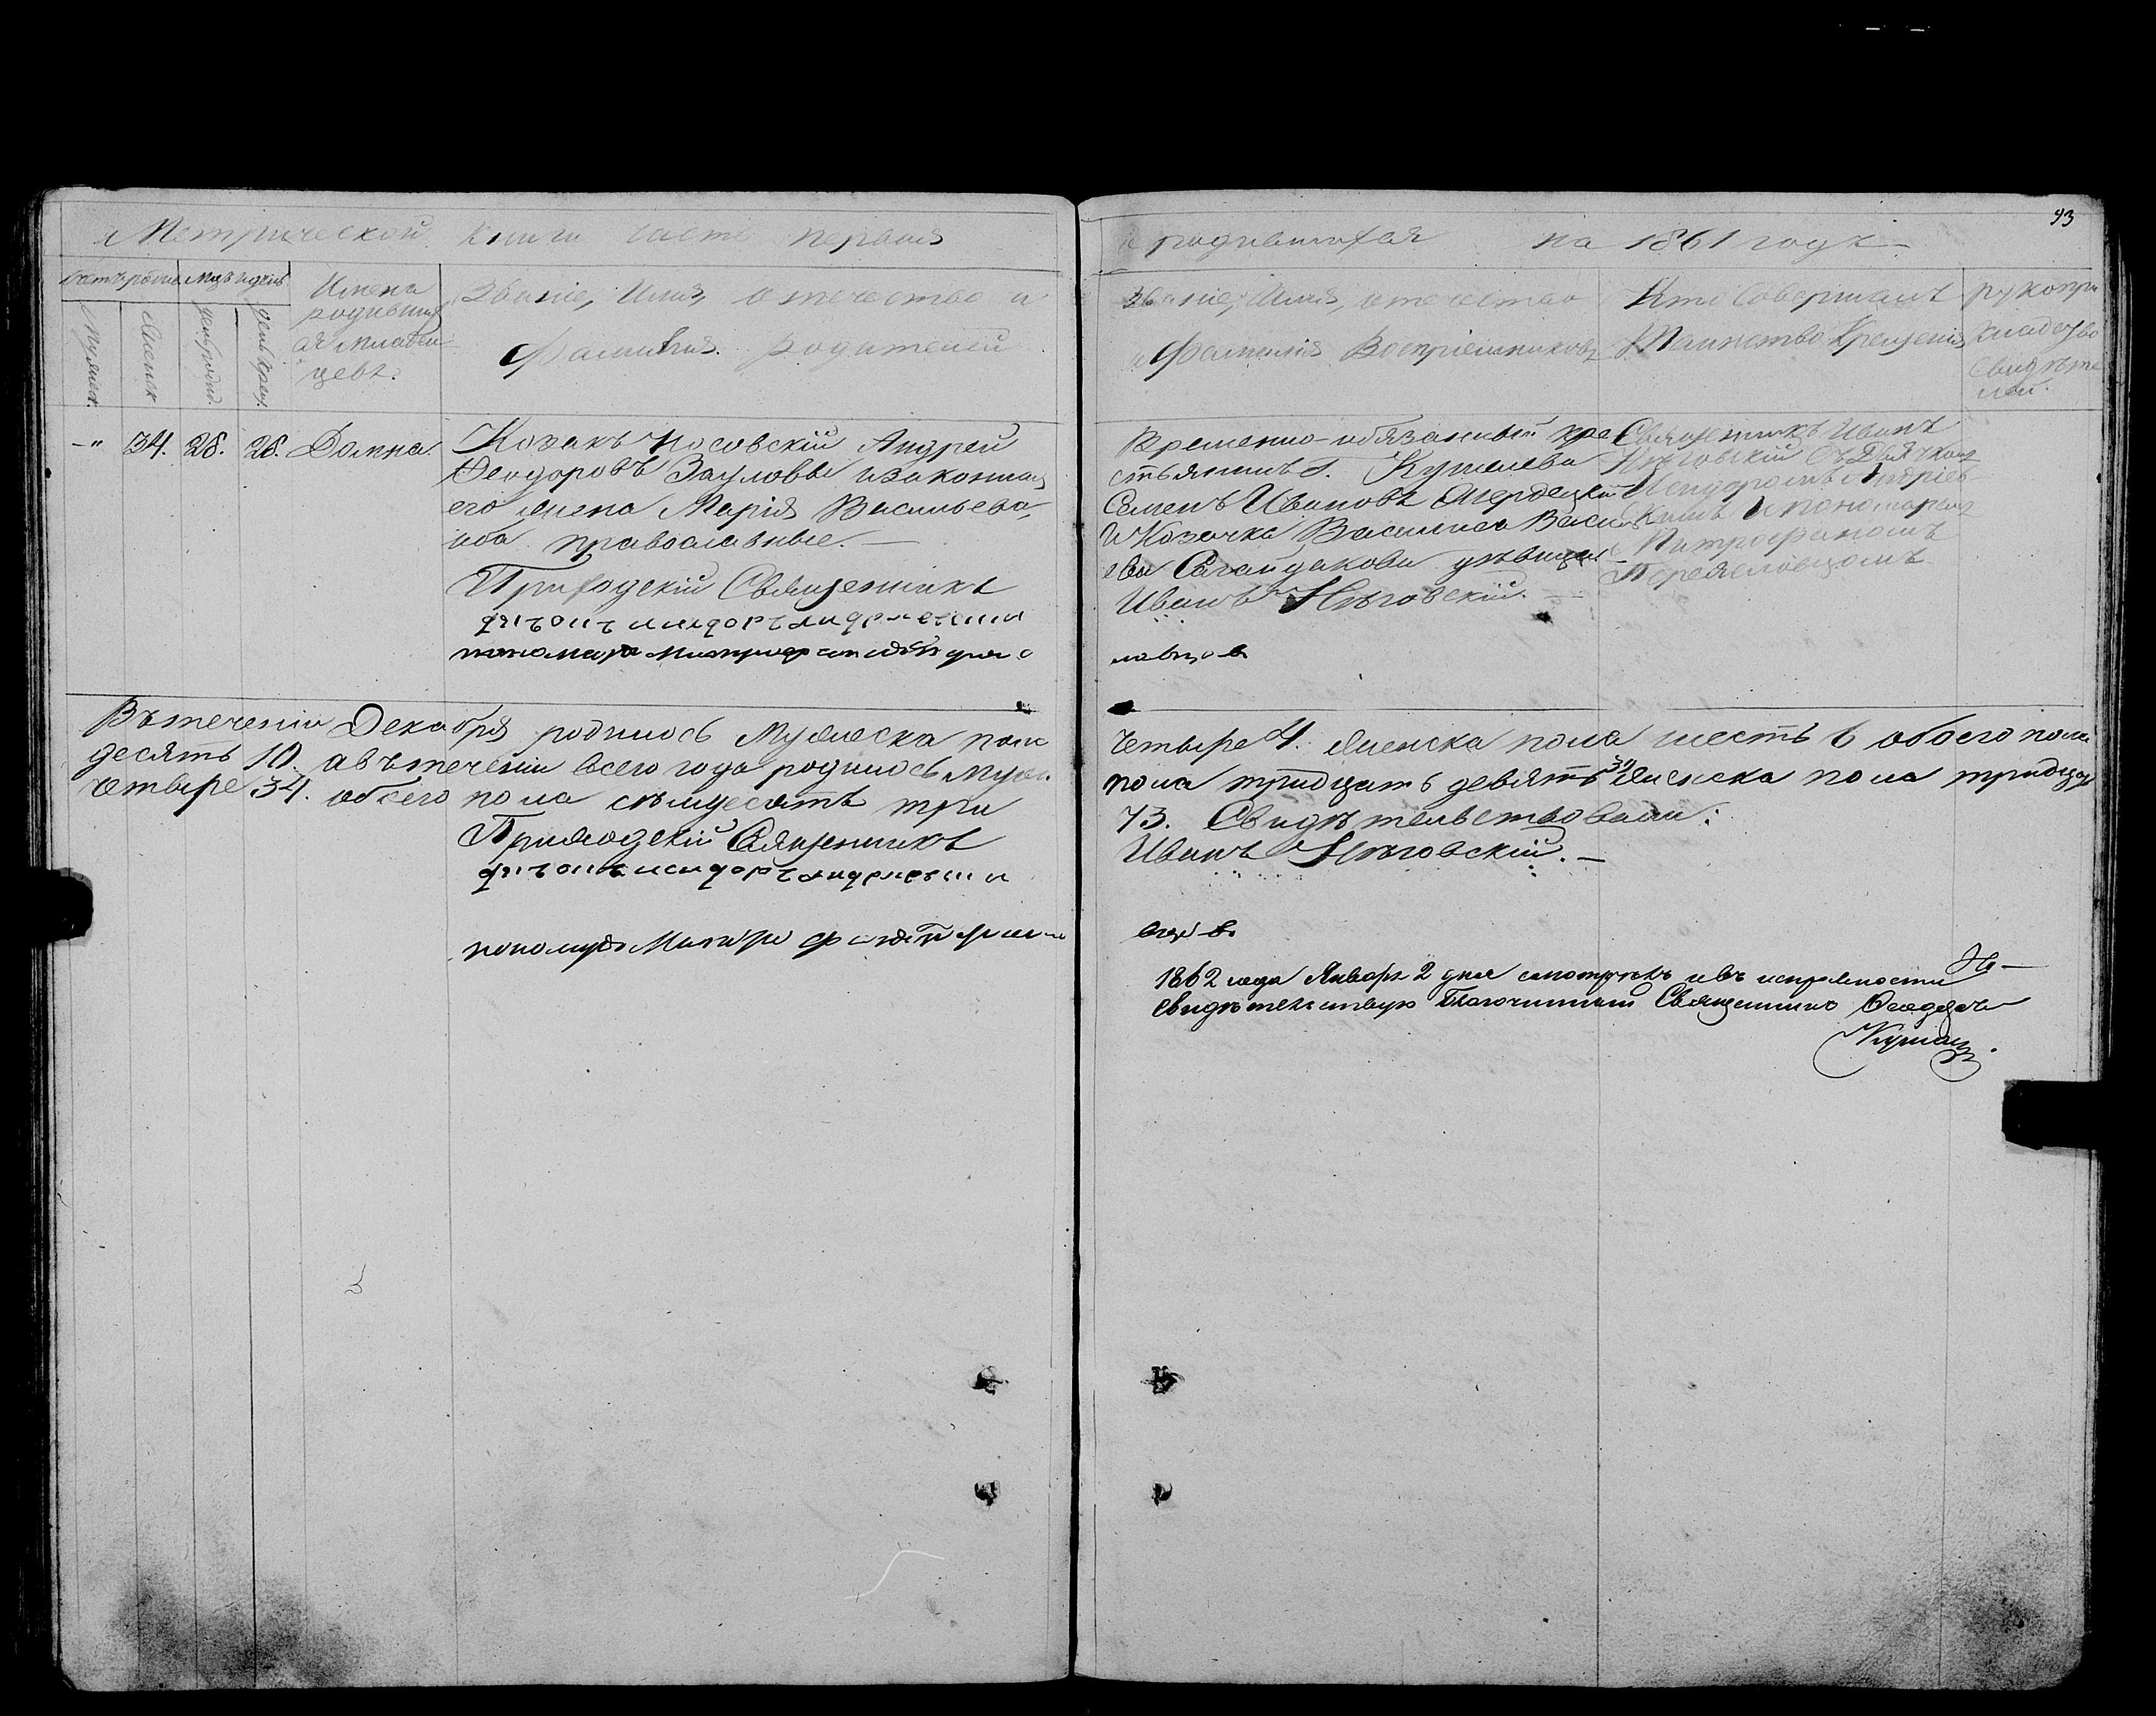 93
Метрической книги часть первая
о родившихся на 1861 годъ
Счетъ родив. Мцъ и день
Мужеск.
Женск.
день рожд.
день крещ.
Имена
родивших
ся младен
цевъ.
Званіе, Имя, отечество и
Фамилія Родителей
Званіе, Имя, отечество
и Фамилія Воспріемниковъ
Кто Совершалъ
Таинство Крещенія
рукопри
кладство
свидѣте
лей.
-" 34. 28. 28. Домна.
Козакъ Носовскій Андрей
Феодоровъ и законная
его жена Марія Васильева,
оба православные. —
Приходскій Священникъ
пономарь
Временно-обязанный кре
стьянинъ г. Кушелева
Семенъ Ивановъ
и Козачка Василиса Васил
ева Сагайдакова дѣвица.
Иванъ Нѣговскій. —
лавцовъ
Священникъ Иванъ
Нѣговскій съ Дьячком
и пономарем
Митрофаномъ
Переяславцомъ
Въ теченіи Декабря родилось Мужеска пола
десять 10. а въ теченіи всего года родилось муже.
четыре 34. обоего пола семдесятъ три
Приходскій Священникъ
пономарь
четыре 4. женска пола шесть 6 обоего пола
пола тридцать девять 39 женска пола тридца
73. Свидѣтельствовали:
Иванъ Нѣговскій. —
вцовъ.
1862 года Января 2 дня смотрѣлъ и въ исправности
свидѣтельствую Благочинный Священникъ